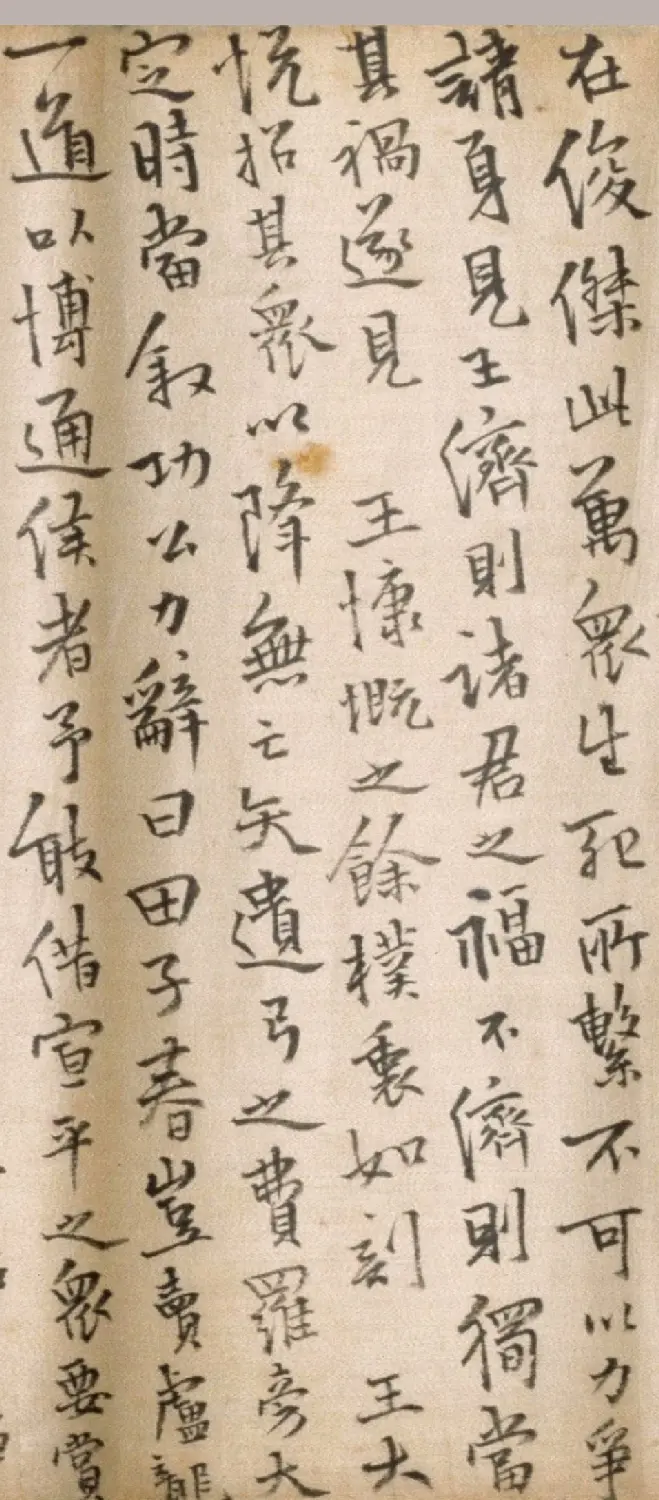 在俊傑此萬衆生死所繫不可以力爭
請身見王濟則諸君之福不濟則獨當
其禍遂見 王慷慨之餘樸裏如刻 王大
悅招其衆以降無亡矢遺弓之費羅旁大
定時當叙功公力辭曰田子春豈賣盧龍
一道以博通侯者予敢借宣平之衆要賞